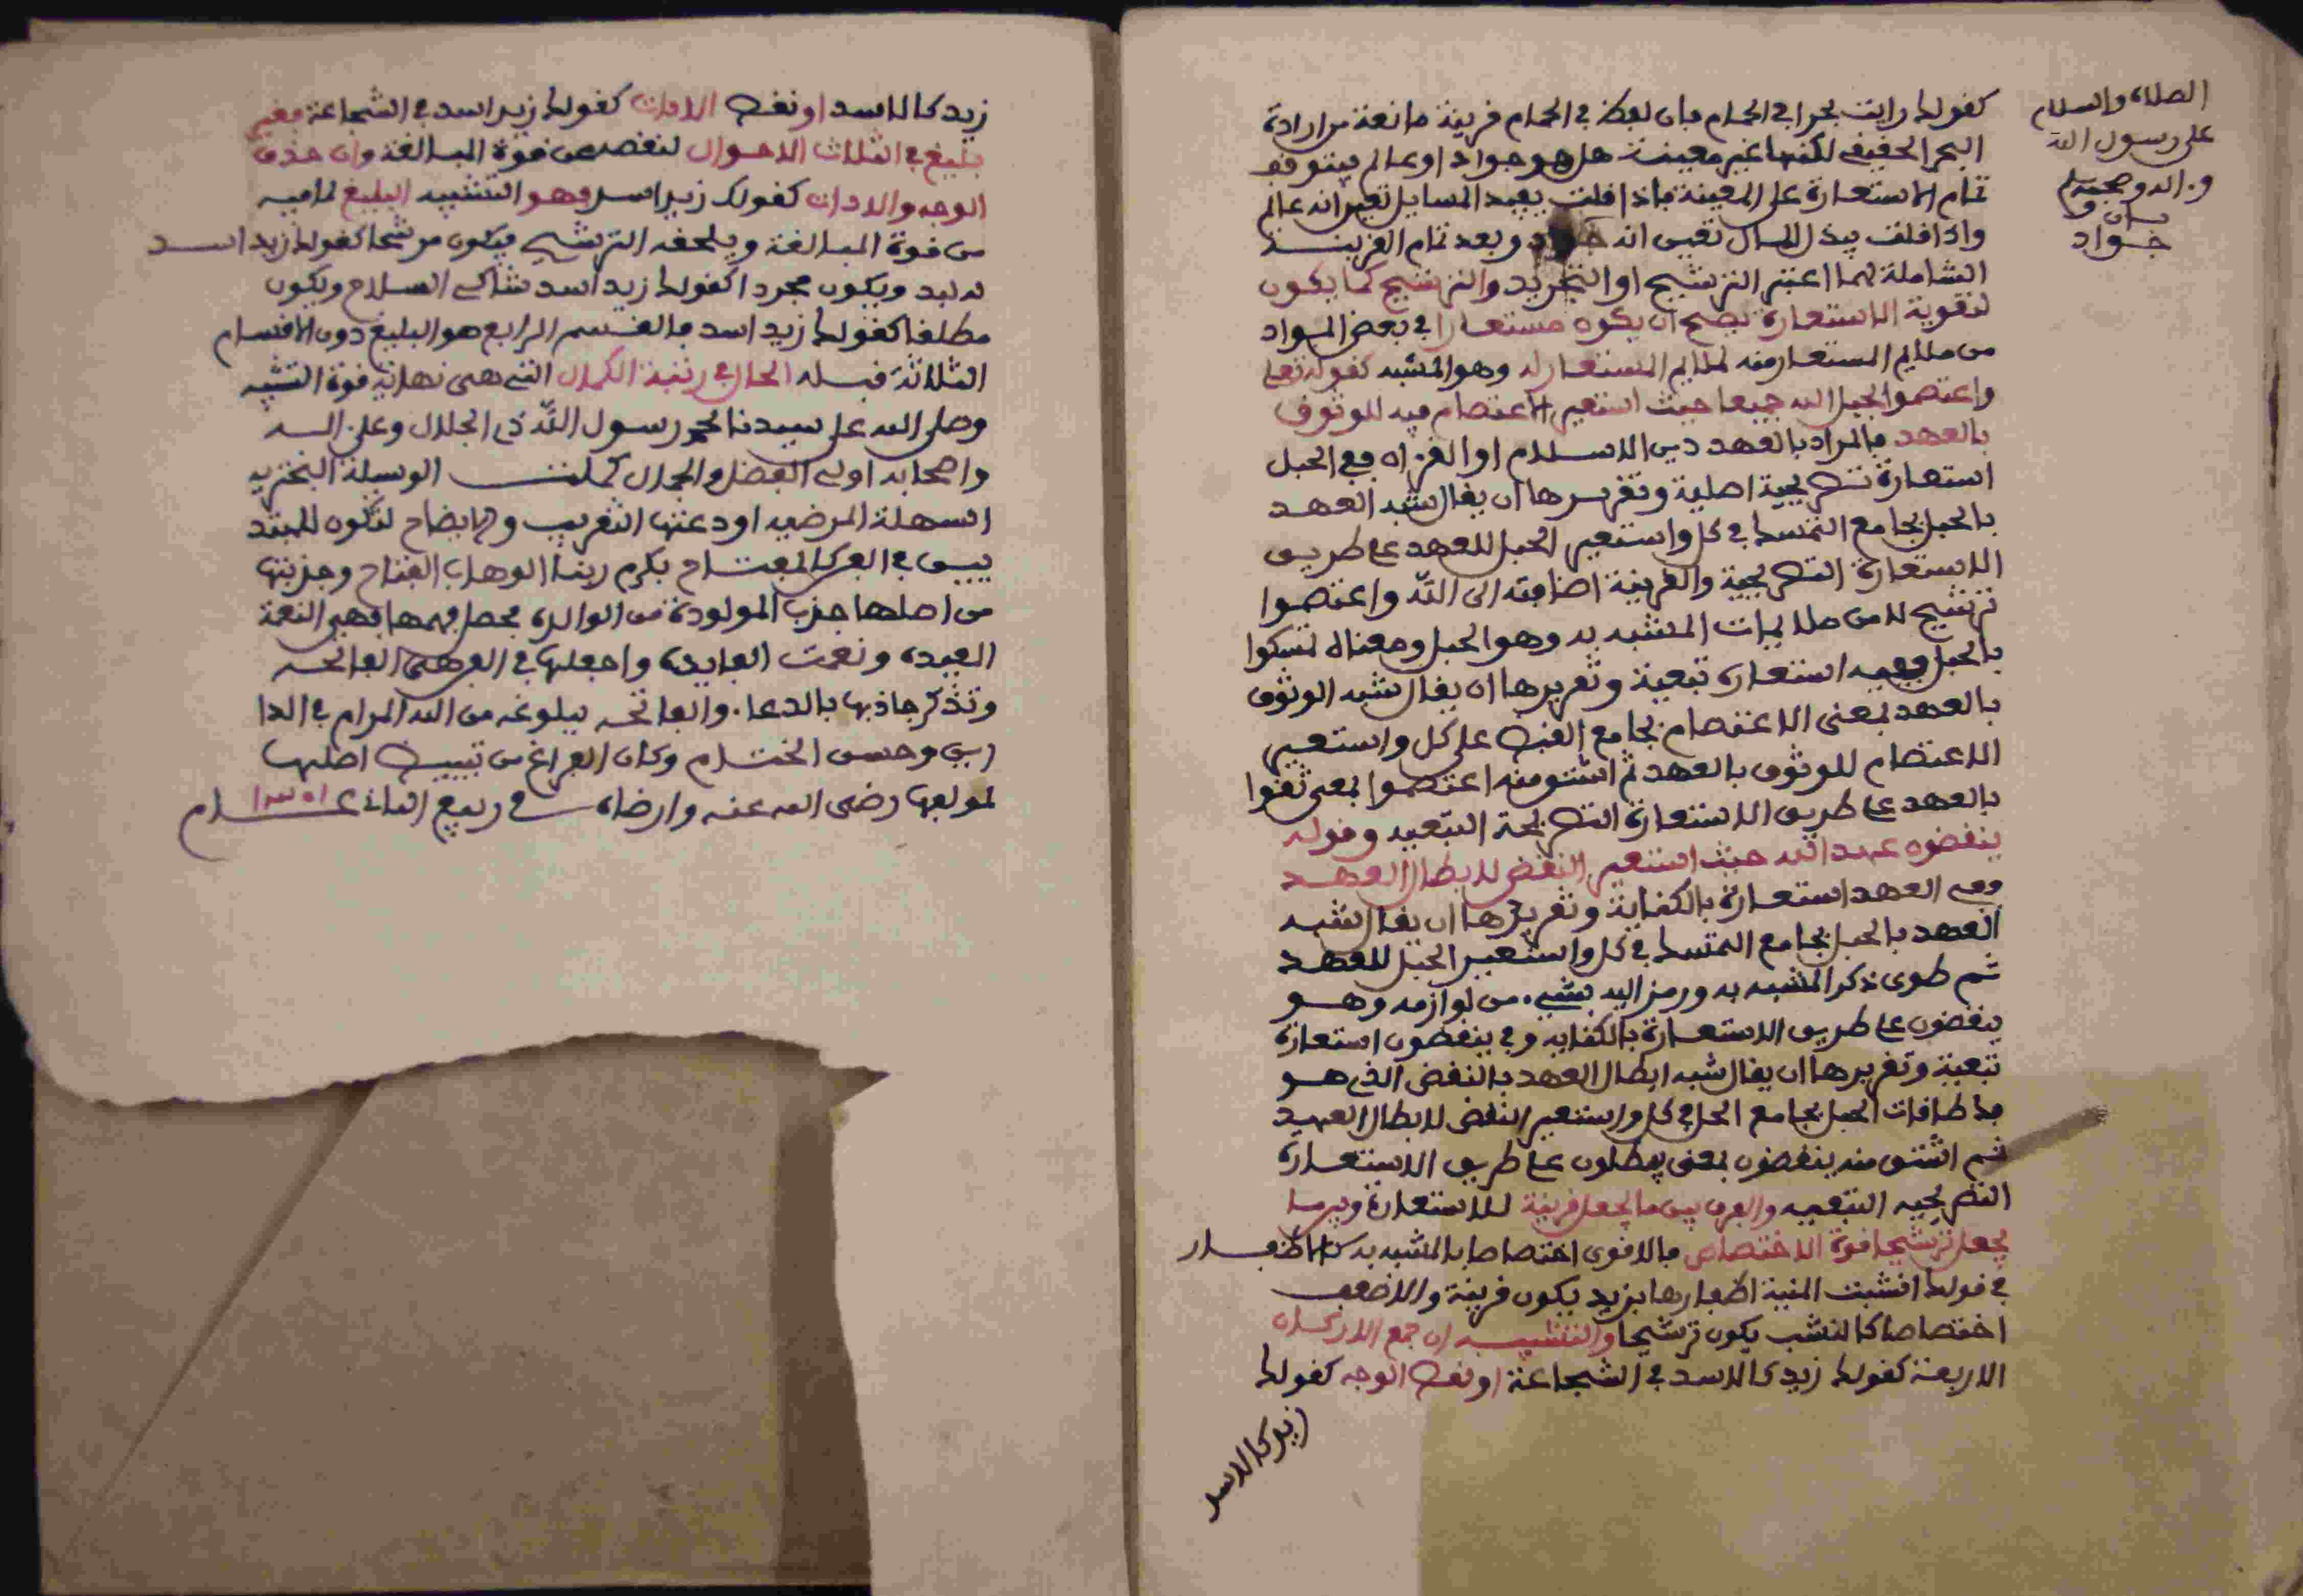 كقولك رايت بحرا في الحمام فان لفظ في الحمام قرينة مانعة من ارادة
البحر الحقيقي لكنها غير معينة هل هو جواد او عالم فيتوقف
تمام الاستعارة على المعينة فاذا قلت يفيد المسايل تعين انه عالم
واذا قلت يبذل المال تعين انه جواد وبعد تمام القرينة
الشاملة لهما اعتبر الترشيح او التجريد والترشيح كما يكون
لتقوية الاستعارة يصح ان يكون مستعارا في بعض المواد
من ملايم المستعار منه لملايم المستعار له وهو المشبه كقوله تعلى
واعتصموا بحبل الله جميعا حيث استعير الاعتصام فيه للوثوق
بالعهد فالمراد بالعهد دين الاسلام او القرءان ففي الحبل
استعارة تصريحية اصلية وتقريرها ان يقال شبه العهد
بالحبل بجامع التمسك في كل واستعير الحبل للعهد على طريق
الاستعارة التصريحية والقرينة اضافته الى الله واعتصموا
ترشيح لانه من ملايمات المشبه به وهو الحبل ومعناه تمسكوا
بالحبل وفيه استعارة تبعية وتقريرها ان يقال شبه الوثوق
بالعهد بمعنى الاعتصام بجامع القبض على كل واستعير
الاعتصام للوثوق بالعهد ثم اشتق منه اعتصموا بمعنى ثقوا
بالعهد على طريق الاستعارة التصريحة التبعيه وقوله
ينقضون عهد الله حيث استعير النقض لابطال العهد
وفي العهد استعارة بالكناية وتقريرها ان يقال شبه
العهد بالحبل بجامع التمسك في كل واستعير الحبل للعهد
ثم طوى ذكر المشبه به ورمز اليه بشيء من لوازمه وهو
ينقضون على طريق الاستعارة بالكنايه وفي ينقضون استعارة
تبعية وتقريرها ان يقال شبه ابطال العهد بالنقض الذي هو
فك طاقات الحبل بجامع الحل في كل واستعير النقض لابطال العهد
ثم اشتق منه ينقضون بمعنى يبطلون على طريق الاستعارة
التصريحيه التبعيه والفرق بين ما يجعل قرينة للاستعارة وبين ما
يجعل ترشيحا قوة الاختصاص فالاقوى اختصاصا بالمشبه به كالاظفار
في قولك انشبت المنية اظفارها بزيد يكون قرينة والاضعف
اختصاصا كالنشب يكون ترشيحا والتشبيه ان جمع الاركان
الاربعة كقولك زيد كالاسد في الشجاعة او نقص الوجه كقولك
زيد كالاسد
الصلاة والسلام
على رسول الله
وءاله وصحبه
جواد
زيد كالاسد او نقص الادات كقولك زيد اسد في الشجاعة فغير
بليغ في الثلاث الاحوال لنقصه عن قوة المبالغة وان حذف
الوجه والادات كقولك زيد اسد فهو التشبيه البليغ لما فيه
من قوة المبالغة ويلحقه الترشيح فيكون مرشحا كقولك زيد اسد
له لبد ويكون مجردا كقولك زيد اسد شاكي السلاح ويكون
مطلقا كقولك زيد اسد فالقسم الرابع هو البليغ دون الاقسام
الثلاثة قبله الحال في رتبة الكمال التي هي نهاية قوة التشبيه
وصلى الله على سيدنا محمد رسول الله ذي الجلال وعلى اله
واصحابه اولي الفضل والجمال كملت الوسيلة
السهلة المرضيه اودعتها التقريب والايضاح لتكون للمبتد
يين في الفن كالمفتاح بكرم ربنا الوهاب الفتاح وجذبتها
من اصلها جذب المولودة من الوالدة فحصل فهمها فهي النعمة
المفيده ونعمت الفايدة واجعلها في
وتذكر جاذبها بالدعاء والفاتحه ببلوغه من الله المرام في الدا
رين وحسن الختام وكان الفراغ من تبييض اصلها
لمولفها رضي الله عنه وارضاه في ربيع الثاني عام